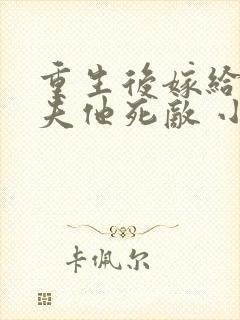 重生後嫁給
夫他死敵 小
卡佩尔